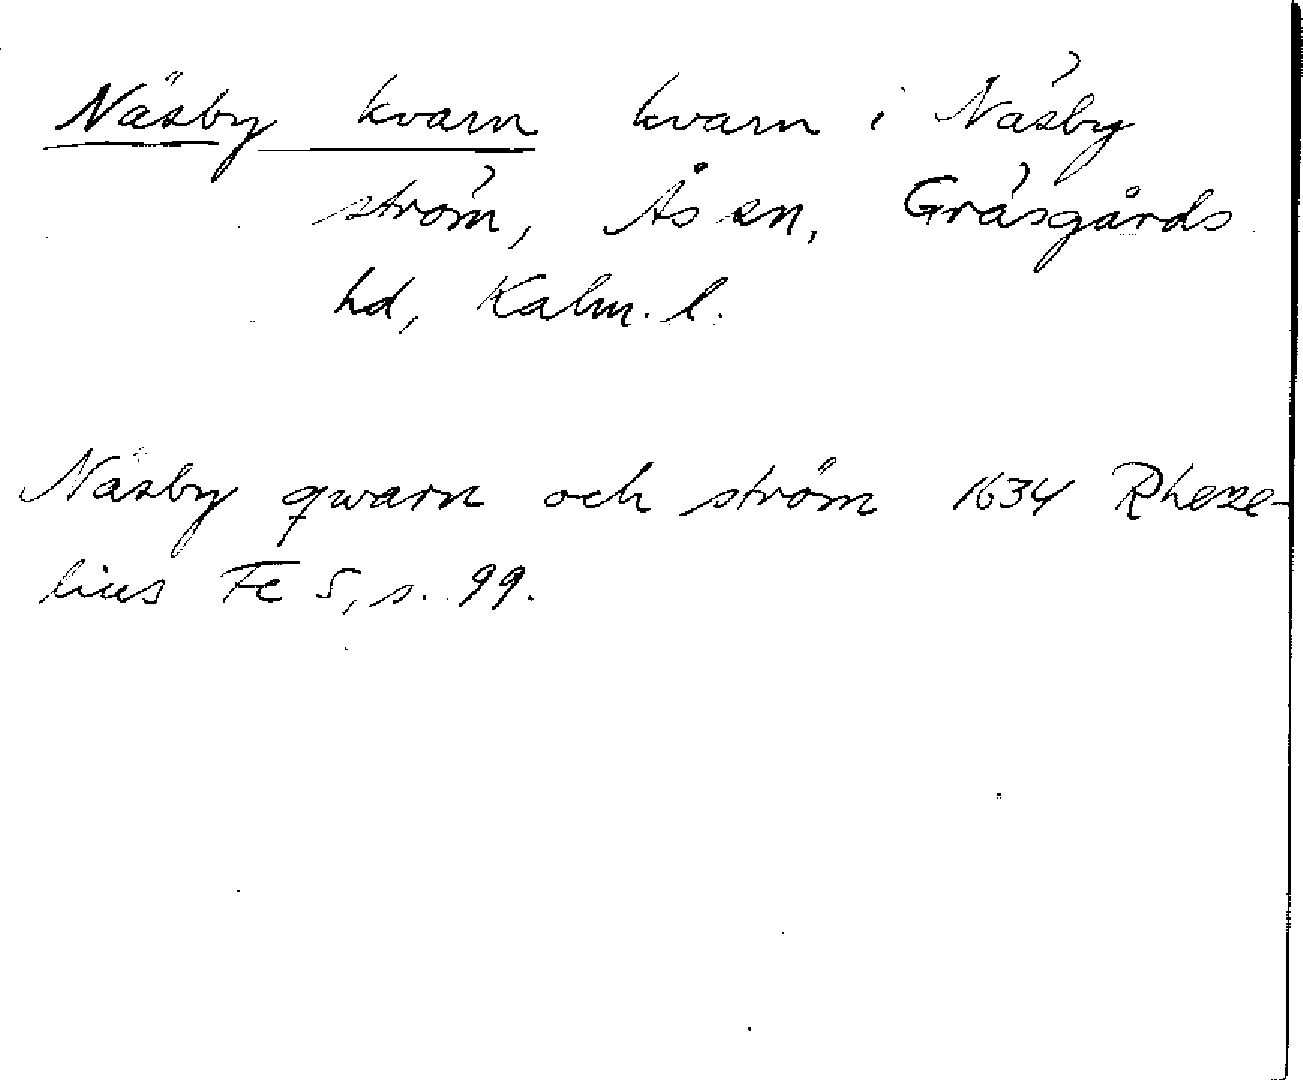 Näsby kvarn kvarn i Näsby
ström, Åsen, Gräsgårds
hd, Kalm. l.
Näsby qwarn och ström 1634 Rheze-
lius Fc 5, s. 99.